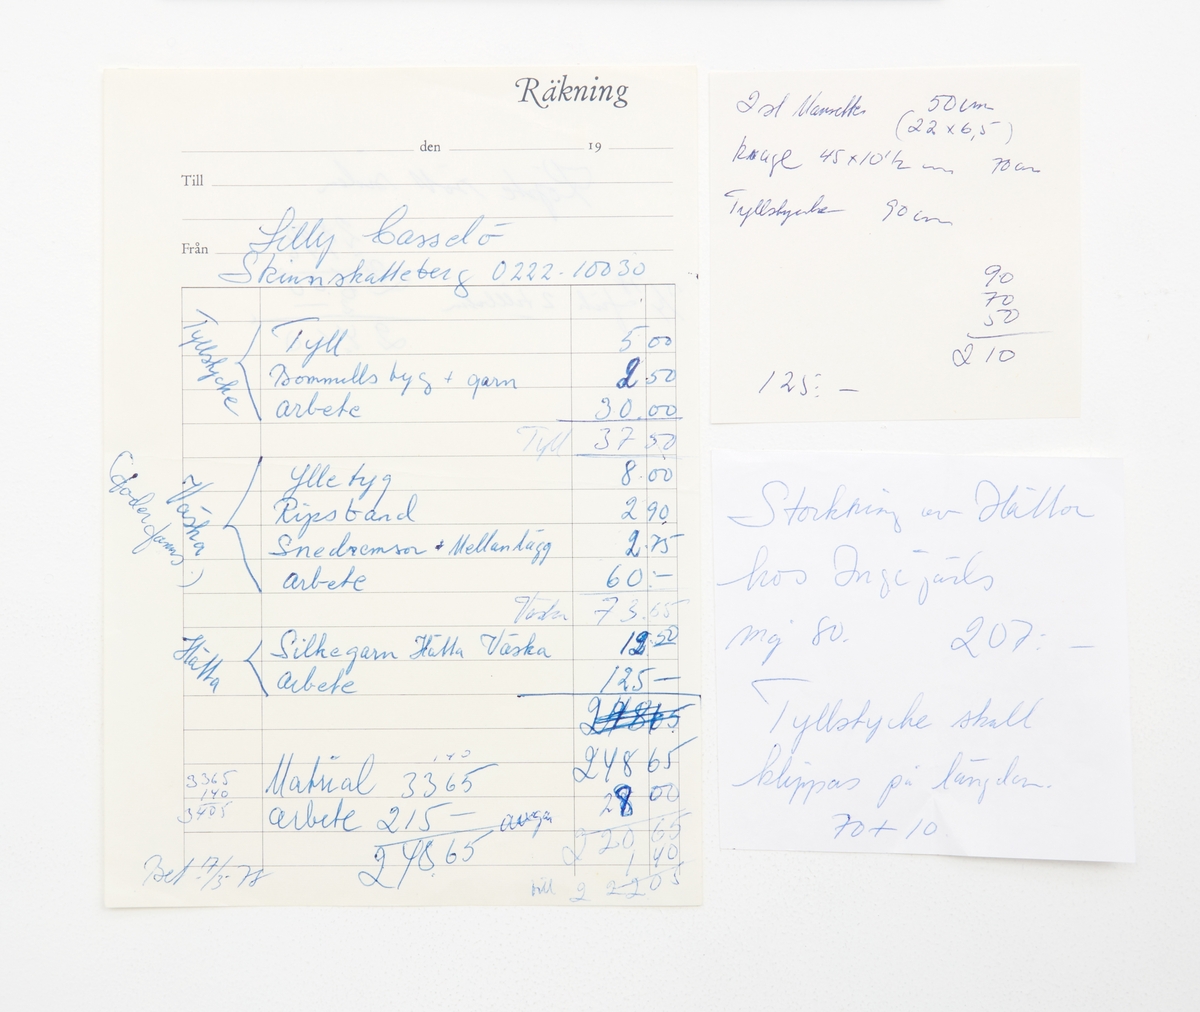 Räkning
den 19
Till
Från Lilly Casselö
Skinnskatteberg 0222-10030
Tyllstycke
Tyll 5 00
Bommulls tyg + garn 2.50
arbete 30.00
Tyll 37 50
Väska
Ylle tyg 8.00
Ripsband 2 90
Snedremsor + Mellanlägg 2.75
arbete 60:-
Väska 73.65
Hätta
Silkegarn Hätta Väska 12.50
arbete 125-
248 65
140
Matrial 3365
28 00
3365
140
3405
arbete 215-
248.65
220 65
1 40
Bet 17/3-78
till 2 22 05
2 st Manschetter 50 cm
(22 x 6,5)
krage 45 x 10 1/2 cm 70 cm
Tyllstycke 90 cm
90
70
50
210
125:-
Storkning av Hättor
hos Ingegärds
maj 80. 207:-
Tyllstycke skall
klippas på längden.
70 + 10.